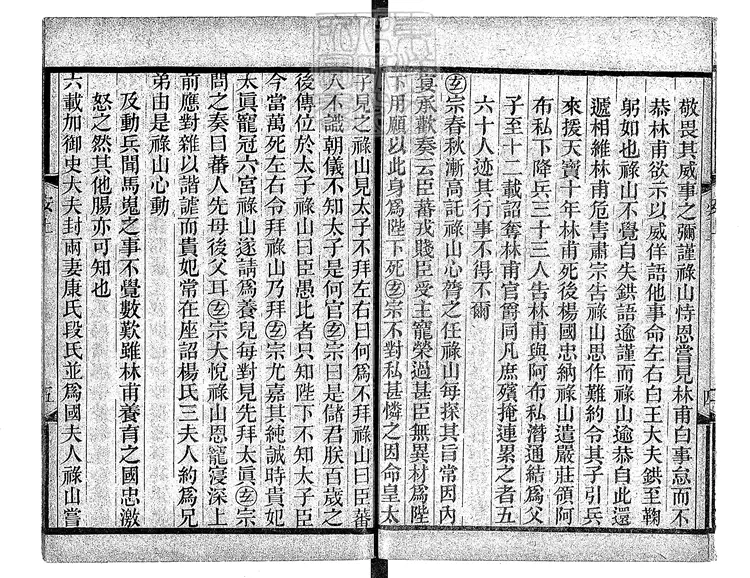 敬畏其威事之彌謹祿山恃恩嘗見林甫白事怠而不
恭林甫欲示以威佯語他事命左右白王大夫鉷至鞠
躬如也祿山不覺自失鉷語逾謹而祿山逾恭自此還
遞相維林甫危害肅宗告祿山思作難約令其子引兵
來援天寶十年林甫死後楊國忠納祿山遣嚴莊領阿
布私下降兵三十三人告林甫與阿布私潛通結為父
子至十二載詔奪林甫官爵同凡庶殯掩連累之者五
六十人迹其行事不得不爾
玄宗春秋漸高託祿山心膂之任祿山每探其旨常因內
宴承歡奏云臣蕃戎賤臣受主寵榮過甚臣無異材為陛
下用願以此身為陛下死玄宗不對私甚憐之因命皇太
子見之祿山見太子不拜左右曰何為不拜祿山曰臣蕃
人不識朝儀不知太子是何官玄宗曰是儲君朕百歲之
後傳位於太子祿山曰臣愚比者只知陛下不知太子臣
今當萬死左右令拜祿山乃拜玄宗尤嘉其純誠時貴妃
太眞寵冠六宮祿山遂請為養兒每對見先拜太眞玄宗
問之奏曰蕃人先母後父耳玄宗大悅祿山恩寵寖深上
前應對雜以諧謔而貴妃常在座詔楊氏三夫人約為兄
弟由是祿山心動
及動兵聞馬嵬之事不覺數歎雖林甫養育之國忠激
怒之然其他腸亦可知也
六載加御史大夫封兩妻康氏段氏並為國夫人祿山嘗